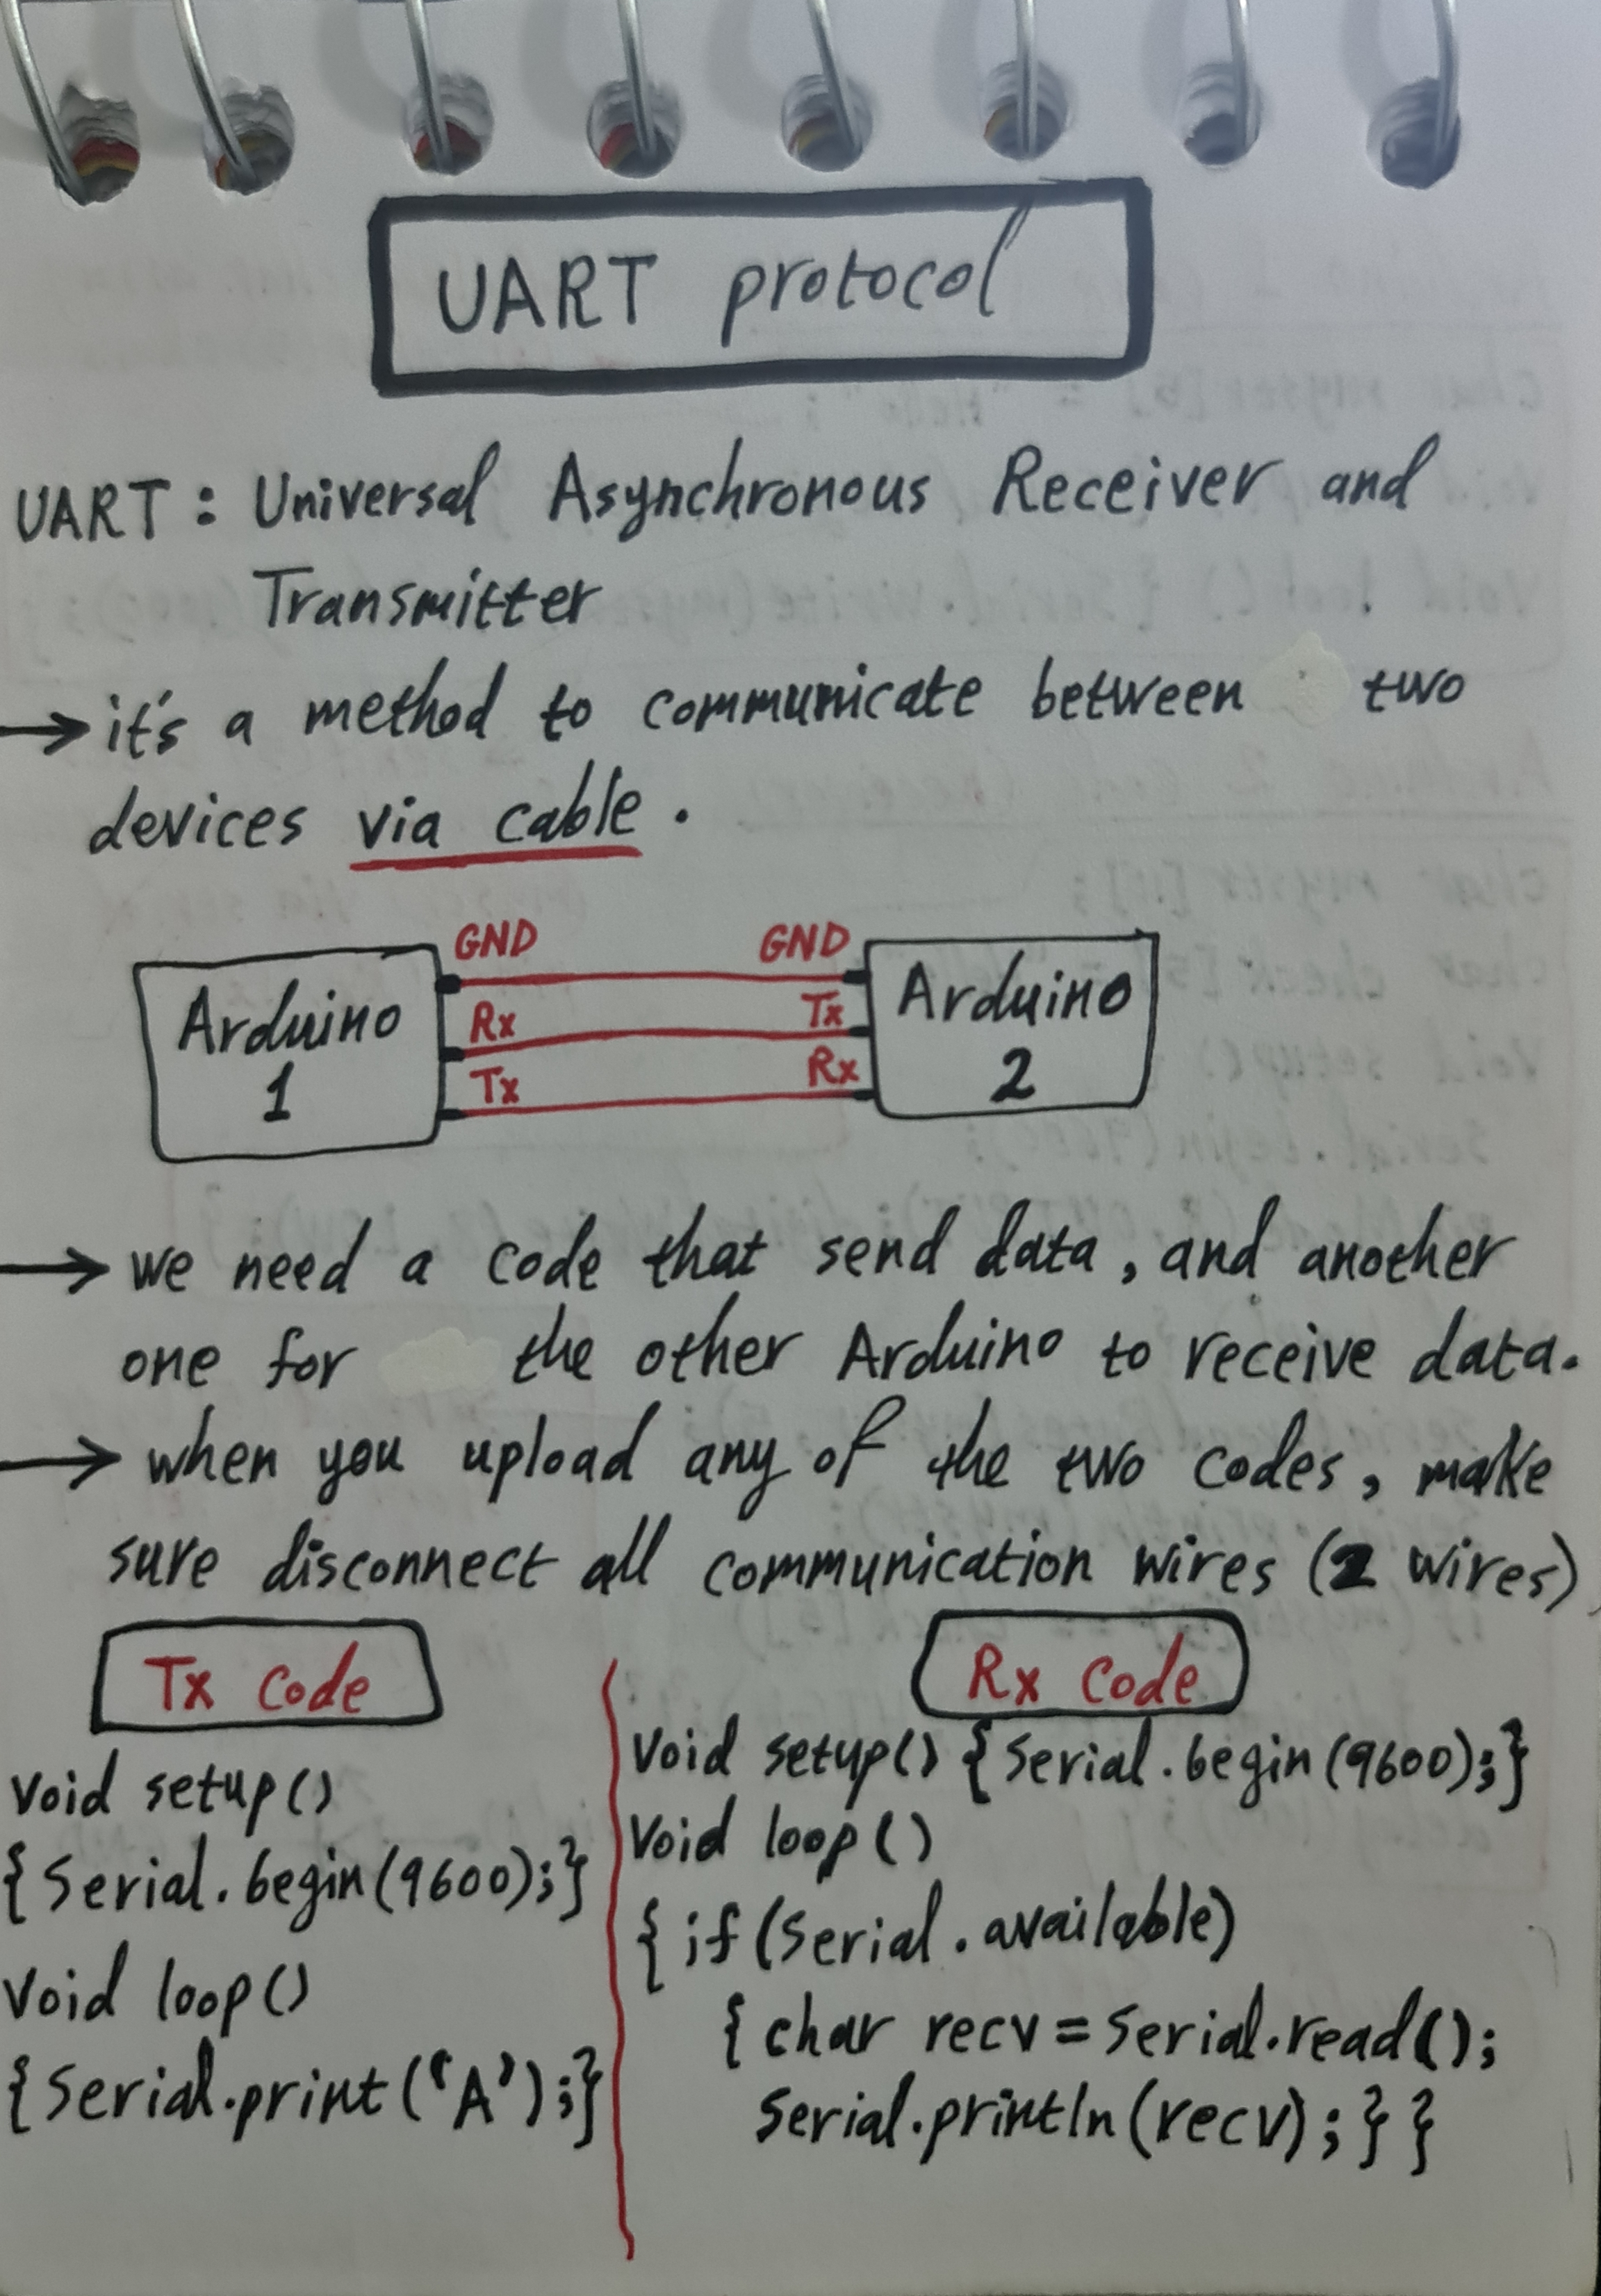 UART protocol
UART : Universal Asynchronous Receiver and
Transmitter
→ it's a method to communicate between two
devices via cable.
GND GND
Arduino Rx Tx Arduino
1 Tx Rx 2
→ we need a code that send data, and another
one for the other Arduino to receive data.
→ when you upload any of the two codes, make
sure disconnect all communication wires (2 wires)
Tx Code
Void setup()
{Serial.begin(9600);}
Void loop()
{Serial.print('A');}
Rx Code
Void setup() {Serial.begin(9600);}
Void loop()
{if(Serial.available)
{char recv = Serial.read();
Serial.println(recv);}}